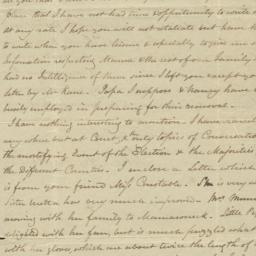 that I have not had time & opportunity to write
at any rate I hope you will not retaliate but have the
to write when you have leisure & especially to give me
information respecting Mamma & the rest of our family
had no Intelligence of them since I left you except you
letter by Mr Kane. Papa I suppose & hansey have
busily employed in preparing for their removal.
I have nothing interesting to mention. I have
any where but at Court & the only topics of Conversation
the mortifying Event of the Election & the Majorities
the different Counties. I enclose a Letter which
is from your friend Miss Constable. She is very
Sister has very much improved. Mrs
moving with her family to Mamaroneck. Little
delighted with her fan, but is much puzzled what
with her gloves which are about twice the length of